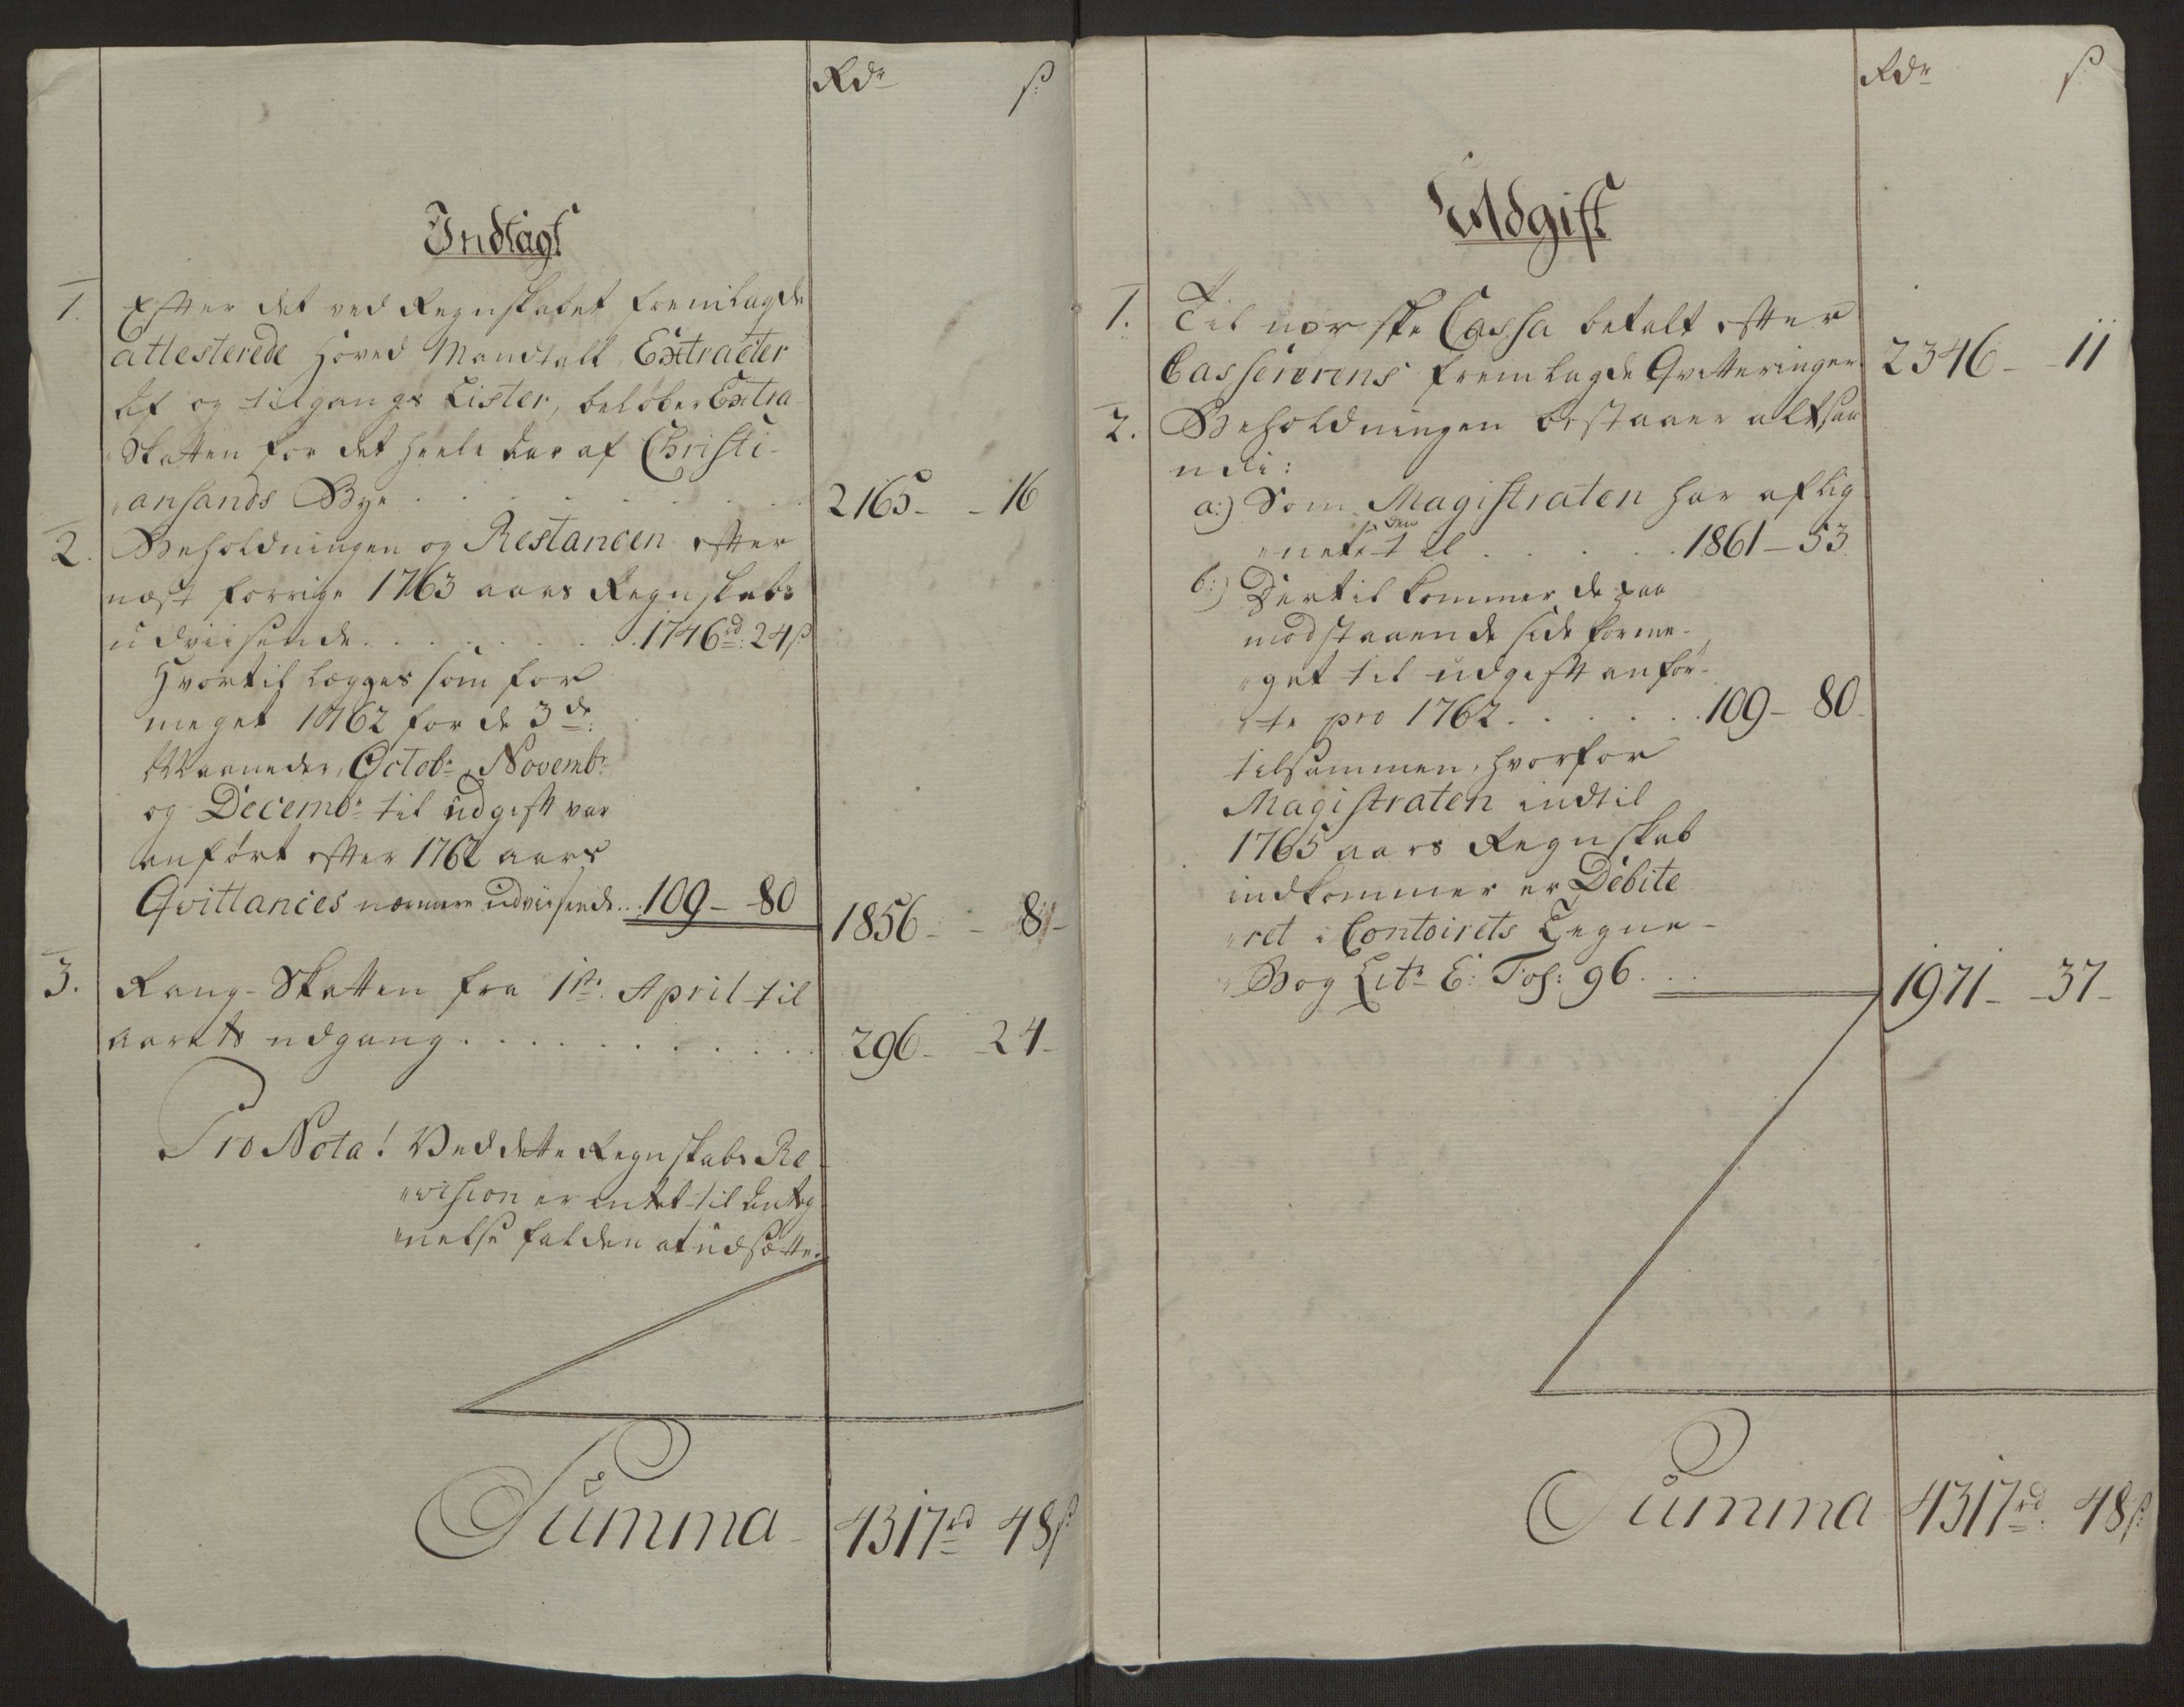 Rdr ß
Indtægt
1. Efter det ved Regnskabet fremlagde
attesterede Hoved Mandtall, Extracter
Af og tilgangs Lister, beløber Extra
Skatten for det heele Aar af Christi-
"ansands Bye . . . 2165 - - 16
2. Beholdningen og Restancen efter
næst forrige 1763 aars Regnskabs
udviisende . . . 1746rd: 24ß
Hvortil lægges som for
meget 1762 for de 3de:
Maaneder, Octobr, Novembr
og Decembr til udgift var
anført efter 1762 aars
Qvittancies nærmere udviisende . . . 109 - 80 1856 - - 8 -
3. Rang-Skatten fra 1ste: April til
aarets udgang . . . 296 - - 24 -
Pro Nota! Ved dette Regnskabs Re-
"vision er intet til Anteg
"nelse falden at udsætte.
Summa - 4317rd 48ß
Rdr ß
Udgift
1. Til norske Cassa betalt efter
Casserens fremlagde Qvitteringer 2346 - - 11
2. Beholdningen bestaaer altsaa
udi:
a:) Som Magistraten har aflig
siden
"net til . . . 1861 - 53
b:) Dertil kommer de paa
modstaaende side forme-
"get til udgift anfør-
"te pro 1762 . . . 109 - 80 -
tilsammen, hvorfor
Magistraten indtil
1765 aars Regnskab
indkommer er Debite
"ret i Contoirets Tegne-
"Bog Litr E: Fol: 96 . . . 1971 - - 37 -
Summa 4317rd: 48ß